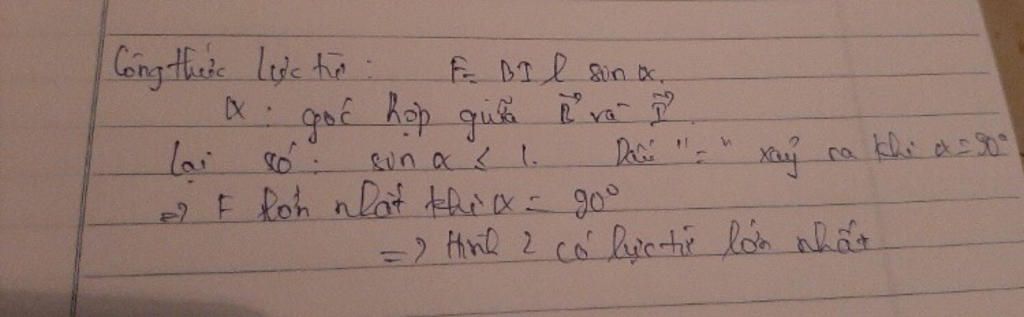 Công thức lực từ : F = BI l sin α.
α : góc hợp giữa B⃗ và I⃗
Lại có : sin α ≤ 1. Dấu "=" xảy ra khi α = 90°
=> F lớn nhất khi α = 90°
=> Hình 2 có lực từ lớn nhất